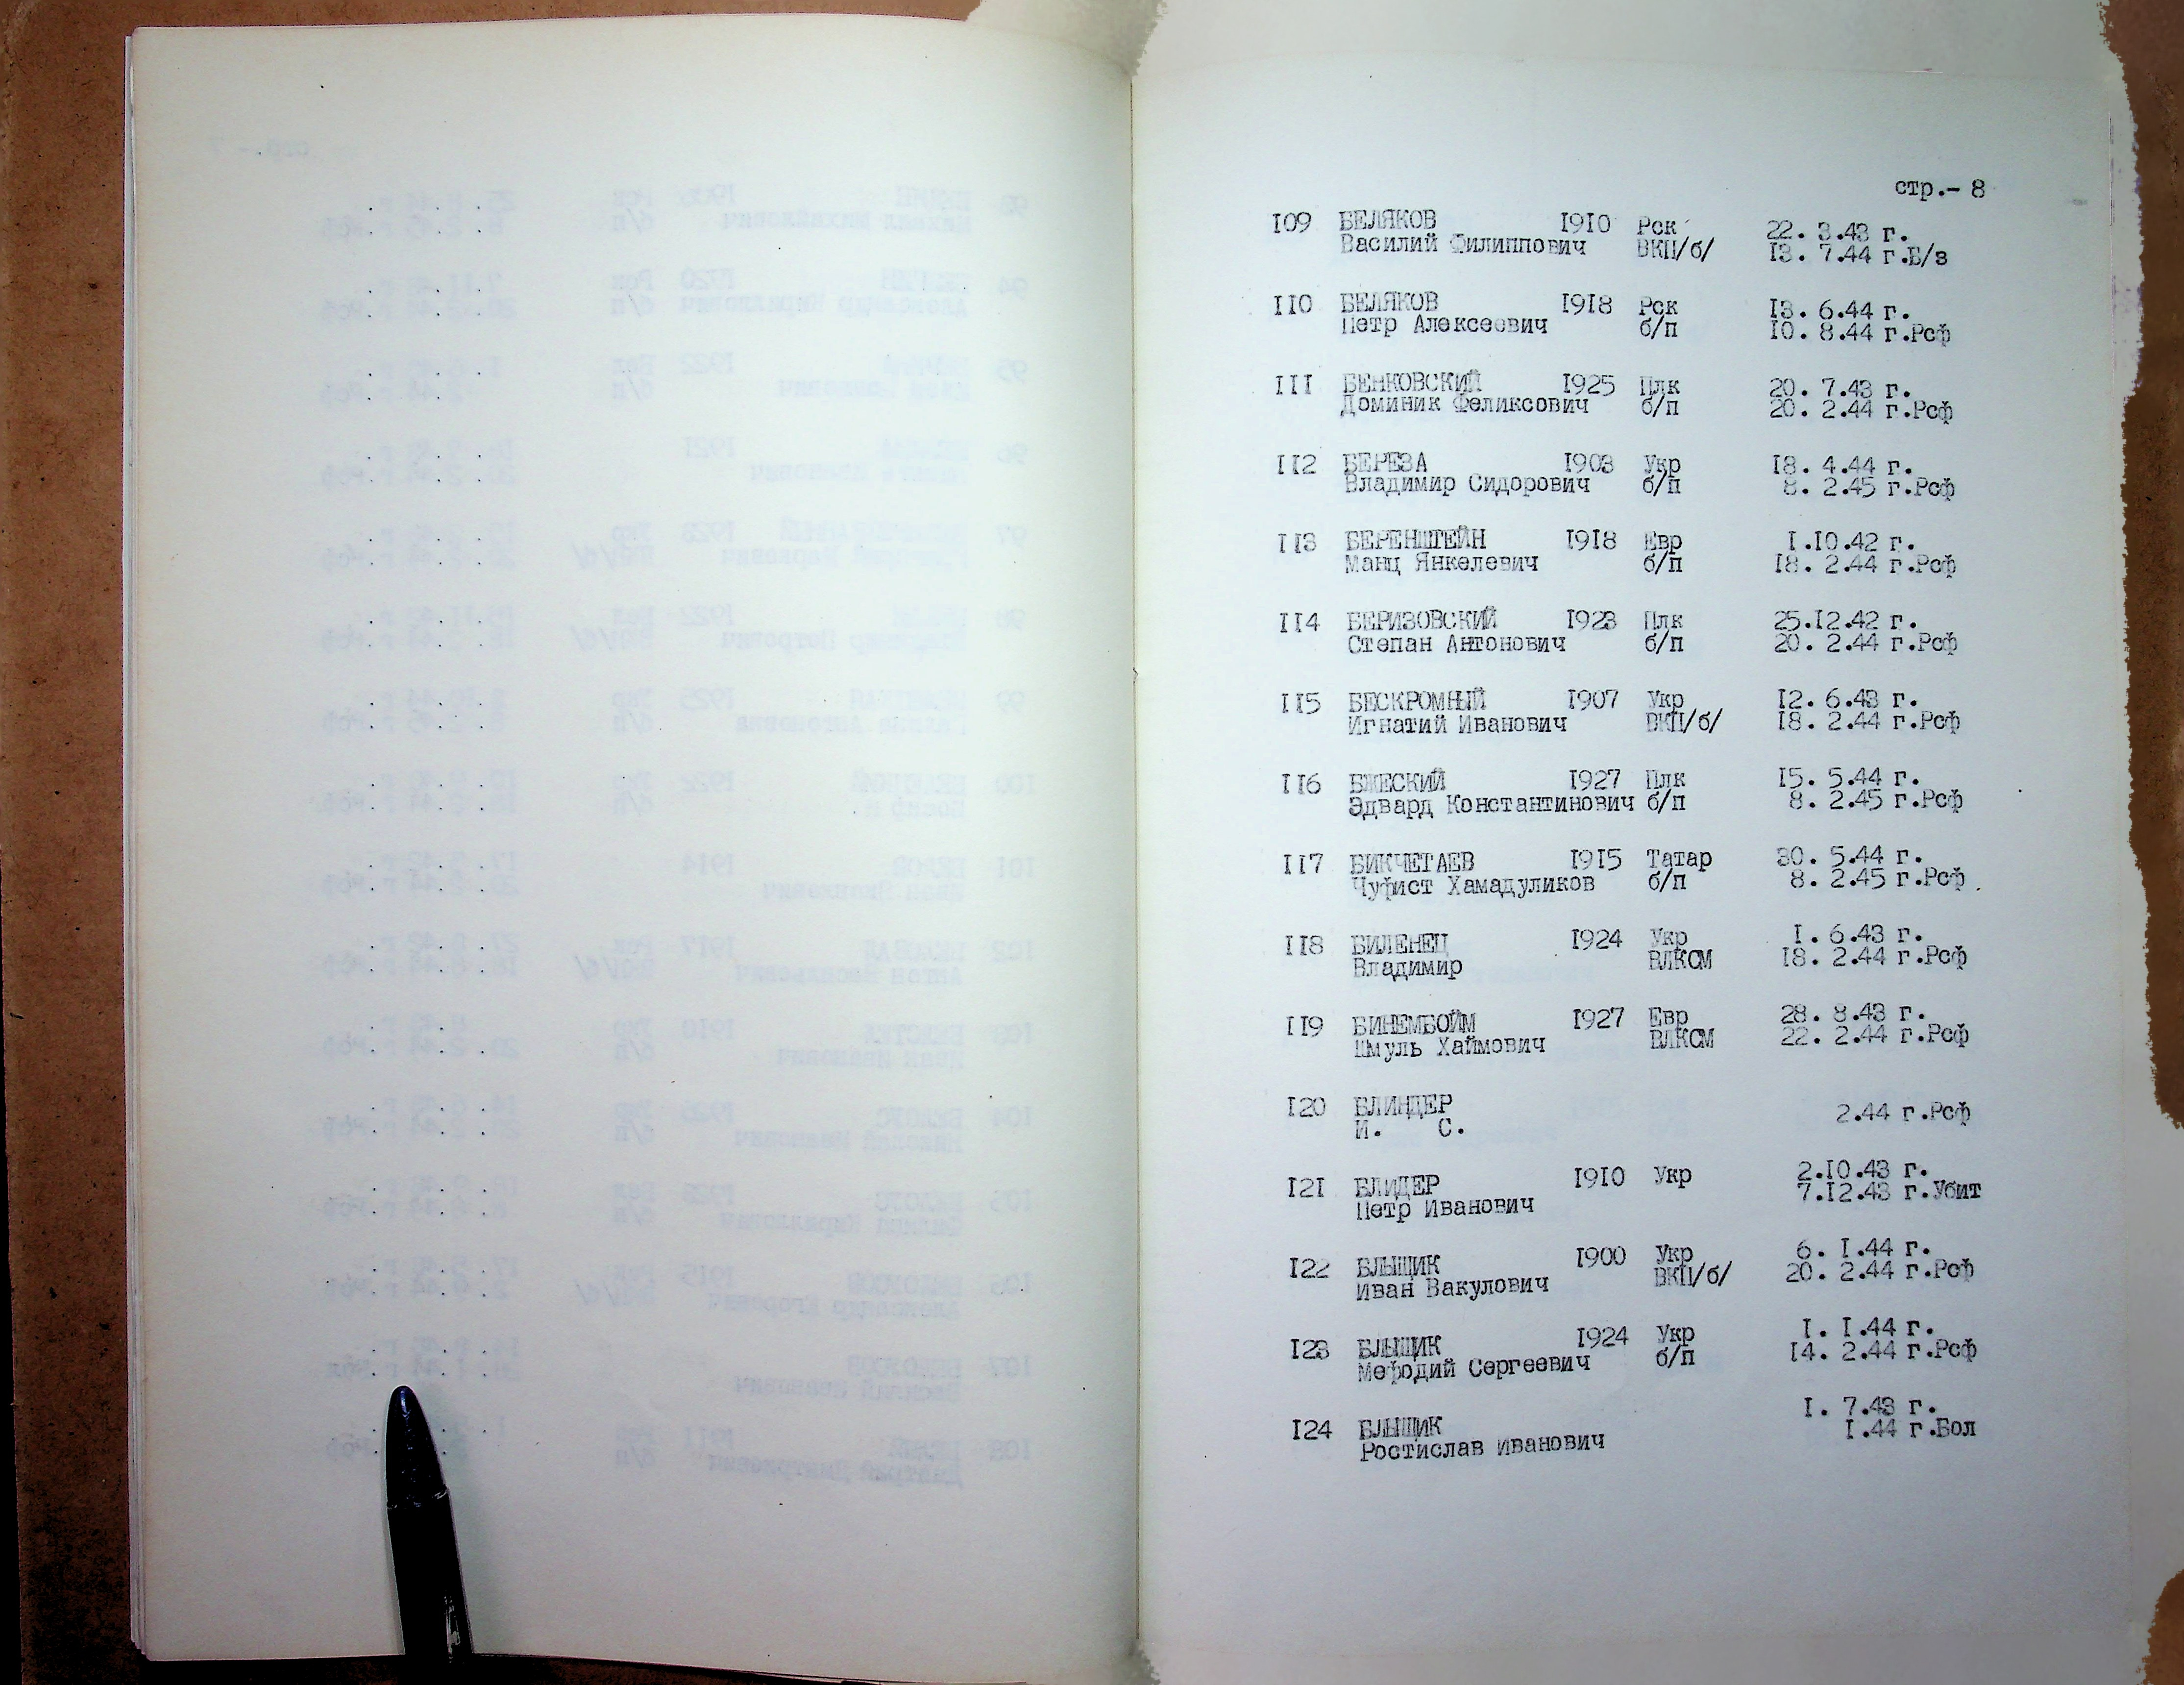 стр.- 8
I09 БЕЛЯКОВ I9I0 Рск 22. 3.43 г.
Василий Филиппович ВКП/б/ I3. 7.44 г.Б/з
II0 БЕЛЯКОВ I9I8 Рск I3. 6.44 г.
Петр Алексеевич б/п I0. 8.44 г.Рсф
III БЕНКОВСКИЙ I925 Плк 20. 7.43 г.
Доминик Феликсович б/п 20. 2.44 г.Рсф
II2 БЕРЕЗА I903 Укр I8. 4.44 г.
Владимир Сидорович б/п 8. 2.45 г.Рсф
II3 БЕРЕНШТЕЙН I9I8 Евр I.I0.42 г.
Манц Янкелевич б/п I8. 2.44 г.Рсф
II4 БЕРИЗОВСКИЙ I923 Плк 25.I2.42 г.
Степан Антонович б/п 20. 2.44 г.Рсф
II5 БЕСКРОМНЫЙ I907 Укр I2. 6.43 г.
Игнатий Иванович ВКП/б/ I8. 2.44 г.Рсф
II6 БЖЕСКИЙ I927 Плк I5. 5.44 г.
Эдвард Константинович б/п 8. 2.45 г.Рсф
II7 БИКЧЕТАЕВ I9I5 Татар 30. 5.44 г.
Чуфист Хамадуликов б/п 8. 2.45 г.Рсф
II8 БИЛЕНЕЦ I924 Укр I. 6.43 г.
Владимир ВЛКСМ I8. 2.44 г.Рсф
II9 БИНЕМБОЙМ I927 Евр 28. 8.43 г.
Шмуль Хаймович ВЛКСМ 22. 2.44 г.Рсф
I20 БЛИНДЕР 2.44 г.Рсф
И. С.
I2I БЛИДЕР I9I0 Укр 2.I0.43 г.
Петр Иванович 7.I2.43 г.Убит
I22 БЛЫЩИК I900 Укр 6. I.44 г.
Иван Вакулович ВКП/б/ 20. 2.44 г.Рсф
I23 БЛЫЩИК I924 Укр I. I.44 г.
Мефодий Сергеевич б/п I4. 2.44 г.Рсф
I24 БЛЫЩИК I. 7.43 г.
Ростислав Иванович I.44 г.Бол